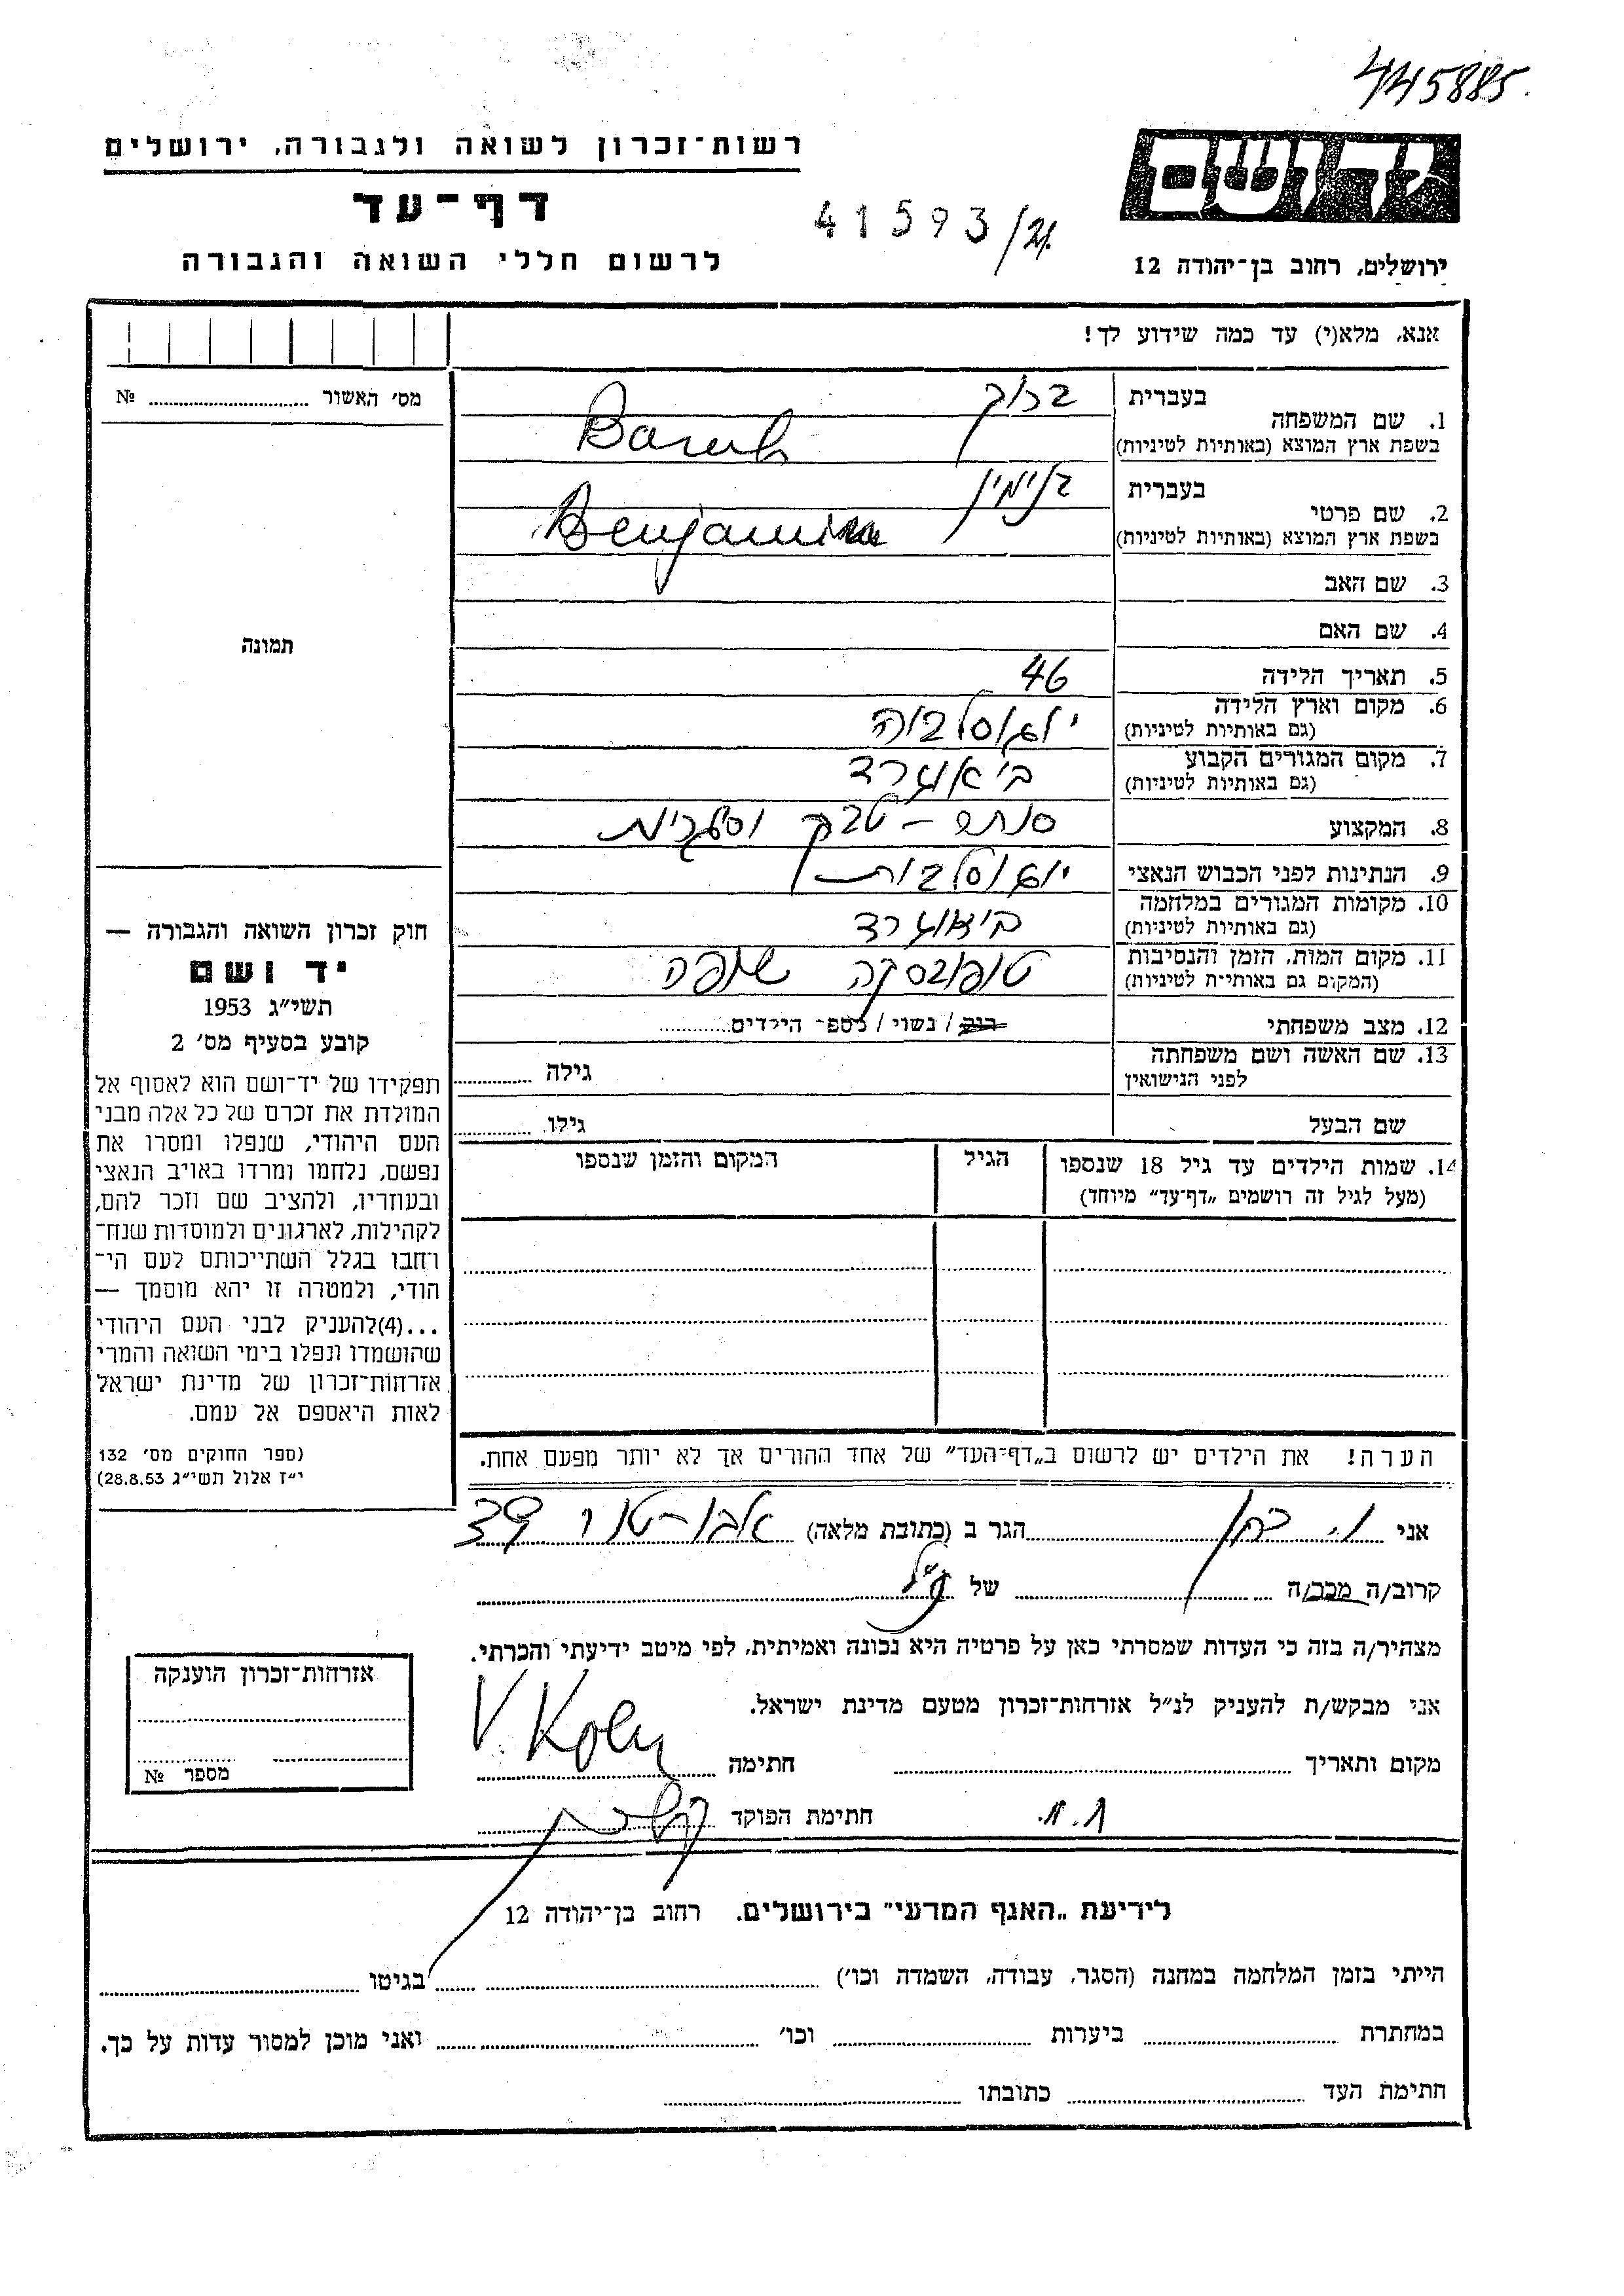 445885
יד ושם
רשות־זכרון לשואה ולגבורה, ירושלים
דף־עד
41593/21
לרשום חללי השואה והגבורה
ירושלים, רחוב בן־יהודה 12
אנא, מלא(י) עד כמה שידוע לך!
מס׳ האשור ........ №
תמונה
1. שם המשפחה
בעברית ברוך
בשפת ארץ המוצא (באותיות לטיניות) Baruh
2. שם פרטי
בעברית בנימין
בשפת ארץ המוצא (באותיות לטיניות) Benjamin
3. שם האב
4. שם האם
5. תאריך הלידה 46
6. מקום וארץ הלידה יוגוסלביה
(גם באותיות לטיניות)
7. מקום המגורים הקבוע ביאוגרד
(גם באותיות לטיניות)
8. המקצוע סוחר – טבק וסיגריות
9. הנתינות לפני הכבוש הנאצי יוגוסלבית
10. מקומות המגורים במלחמה ביאוגרד
(גם באותיות לטיניות)
11. מקום המות, הזמן והנסיבות טופובסקה שופה
(המקום גם באותיות לטיניות)
12. מצב משפחתי רוק / נשוי / מספ־ הילדים........
13. שם האשה ושם משפחתה גילה ........
לפני הנישואין
שם הבעל גילו ........
14. שמות הילדים עד גיל 18 שנספו הגיל המקום והזמן שנספו
(מעל לגיל זה רושמים „דף־עד״ מיוחד)
הערה! את הילדים יש לרשום ב„דף־העד״ של אחד ההורים אך לא יותר מפעם אחת.
חוק זכרון השואה והגבורה —
יד ושם
תשי״ג 1953
קובע בסעיף מס׳ 2
תפקידו של יד־ושם הוא לאסוף אל
המולדת את זכרם של כל אלה מבני
העם היהודי, שנפלו ומסרו את
נפשם, נלחמו ומרדו באויב הנאצי
ובעוזריו, ולהציב שם וזכר להם,
לקהילות, לארגונים ולמוסדות שנח־
רחבו בגלל השתייכותם לעם הי־
הודי, ולמטרה זו יהא מוסמך —
...(4)להעניק לבני העם היהודי
שהושמדו ונפלו בימי השואה והמרי
אזרחות־זכרון של מדינת ישראל
לאות היאספם אל עמם.
(ספר החוקים מס׳ 132
י״ז אלול תשי״ג 28.8.53)
אני ו. כהן הגר ב (כתובת מלאה) אבו-טור 39
קרוב/ה מכר/ה ........ של הנ״ל
מצהיר/ה בזה כי העדות שמסרתי כאן על פרטיה היא נכונה ואמיתית, לפי מיטב ידיעתי והכרתי.
אני מבקש/ת להעניק לנ״ל אזרחות־זכרון מטעם מדינת ישראל.
מקום ותאריך ........ חתימה V. Koen
חתימת הפוקד
אזרחות־זכרון הוענקה
מספר №
לידיעת „האגף המדעי״ בירושלים. רחוב בן־יהודה 12
הייתי בזמן המלחמה במחנה (הסגר, עבודה, השמדה וכו׳) ........ בגיטו ........
במחתרת ........ ביערות ........ וכו׳ ........ ואני מוכן למסור עדות על כך.
חתימת העד ........ כתובתו ........